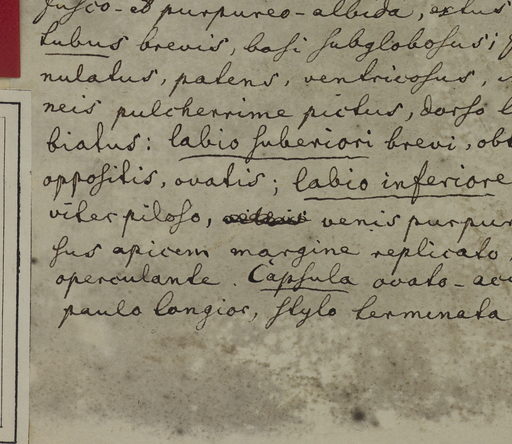 fusco-et purpureo-albida, extus
tubus brevis, basi subglobosus;
nulatus, patens, ventricosus,
neis pulcherrime pictus, dorso
biatus: labio superiori brevi, obt
oppositis, ovatis; labio inferiore
viter piloso, venis purpur
sus apicem margine replicato,
operculante. Capsula ovato-acu
paulo longior, stylo terminata